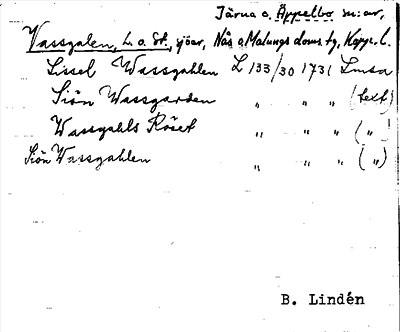 Järna o. Äppelbo sn:ar,
Vassgalen, L. o. St. sjöar, Nås o. Malungs doms. tg, Kopp. l.
Lissel Wassgahlen L 133/30 1731 Lmsa
Siön Wassgarden " " " (text)
Wassgahls Röset " " " (")
Siön Wassgahlen " " " (")
B. Lindén